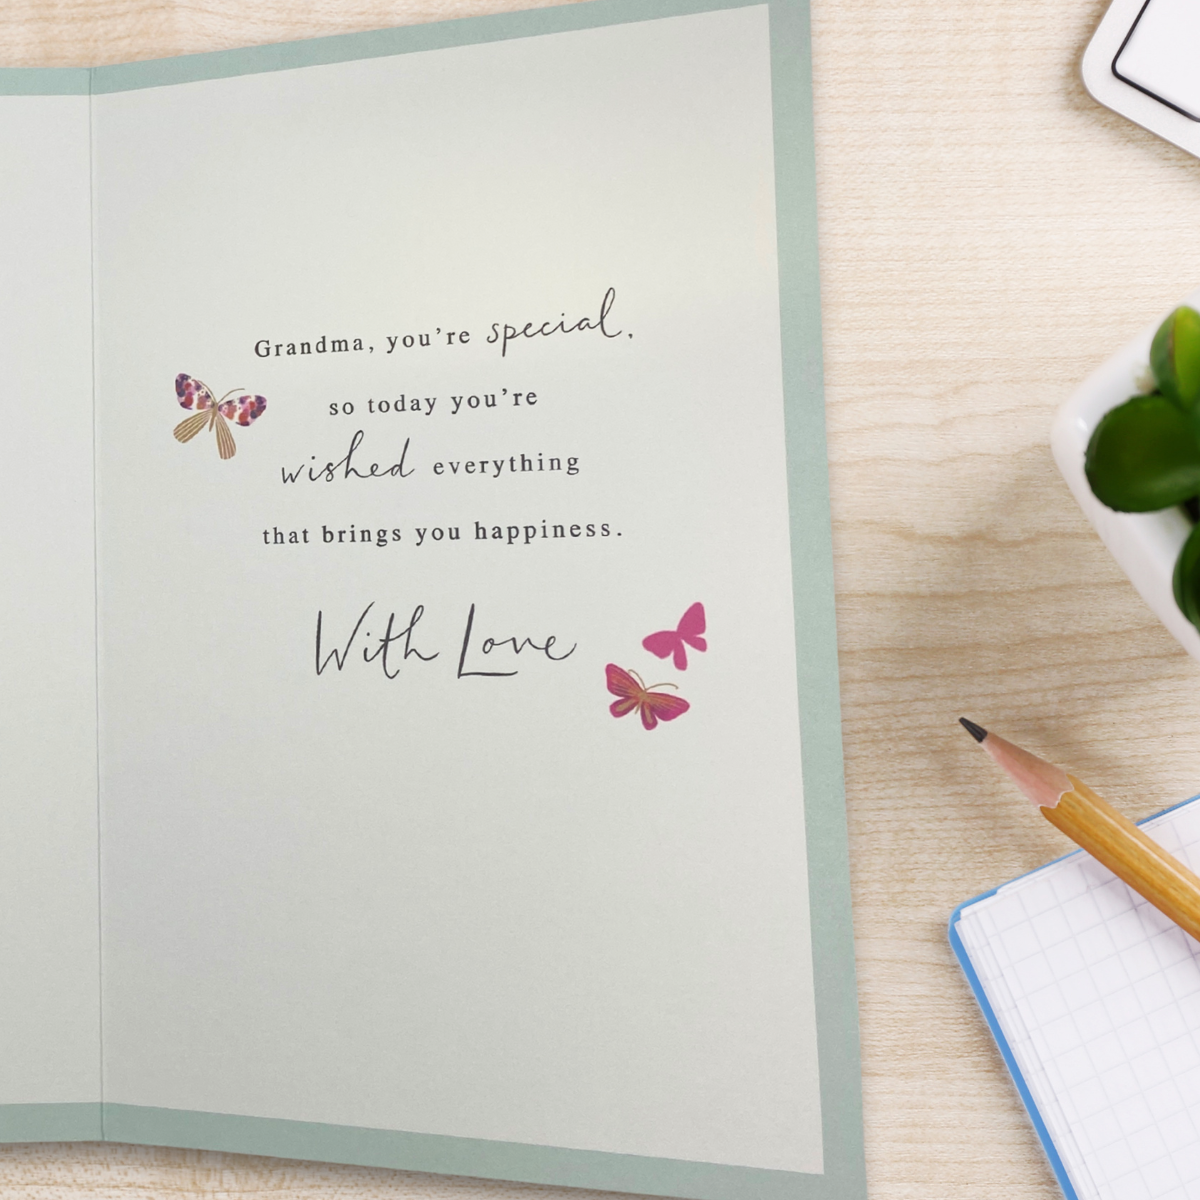 Grandma, you're special,
so today you're
wished everything
that brings you happiness.
With Love